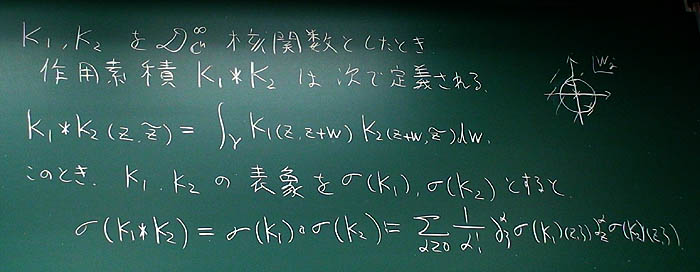 K₁, K₂ を 𝒟^∞_{ℂⁿ} 核関数としたとき
作用素積 K₁*K₂ は次で定義される.
W_i
K₁*K₂(z, z̃) = ∫_γ K₁(z, z+w) K₂(z+w, z̃)dw.
このとき. K₁. K₂ の表象を σ(K₁), σ(K₂) とすると
σ(K₁*K₂) = σ(K₁)∘σ(K₂) := Σ_{α≥0} 1/α! ∂_ζ^α σ(K₁)(z,ζ) ∂_z^α σ(K₂)(z,ζ)